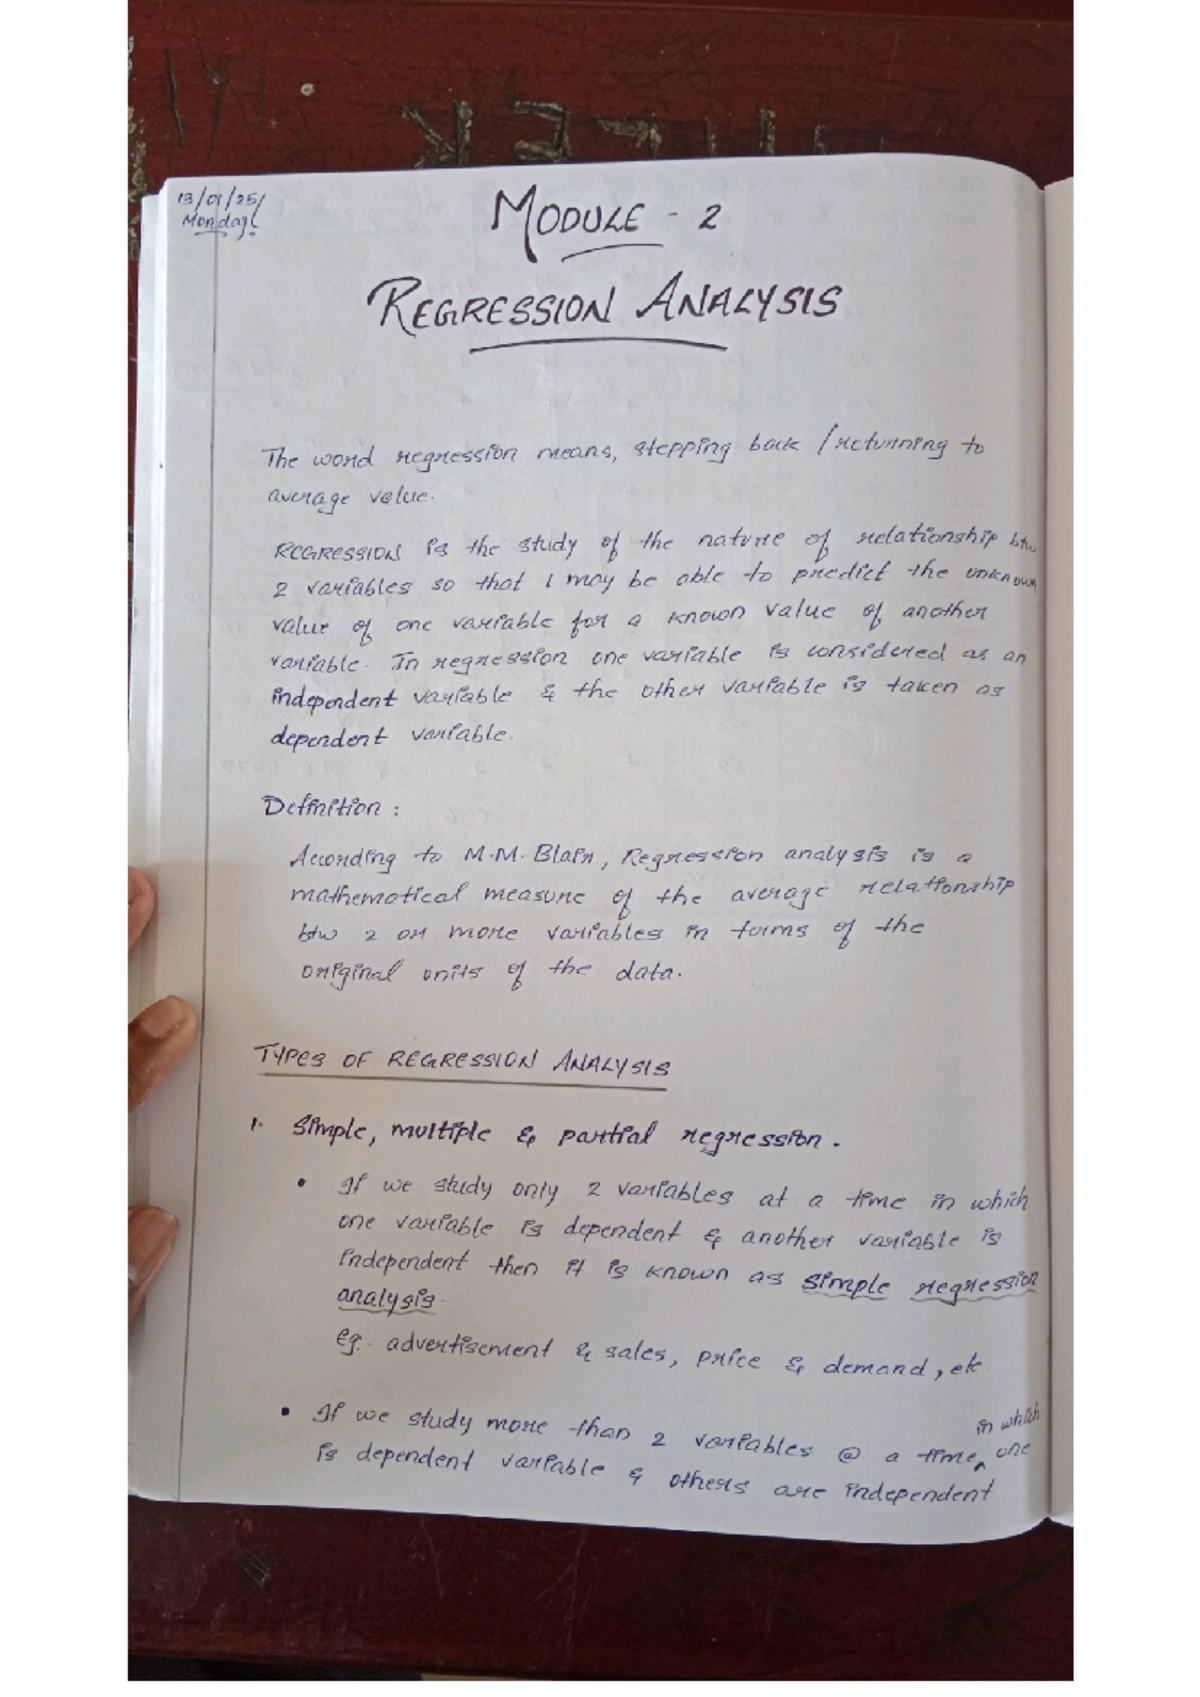 13/01/25/
Monday!
MODULE - 2
REGRESSION ANALYSIS
The word regression means, stepping back / returning to
average value.
REGRESSION is the study of the nature of relationship btw
2 variables so that I may be able to predict the unknown
value of one variable for a known value of another
variable. In regression one variable is considered as an
independent variable & the other variable is taken as
dependent variable.
Definition :
According to M.M. Blain, Regression analysis is a
mathematical measure of the average relationship
btw 2 or more variables in terms of the
original units of the data.
TYPES OF REGRESSION ANALYSIS
1. Simple, multiple & partial regression.
• If we study only 2 variables at a time in which
one variable is dependent & another variable is
independent then it is known as simple regression
analysis.
eg. advertisement & sales, price & demand, etc.
• If we study more than 2 variables @ a time, in which one
is dependent variable & others are independent